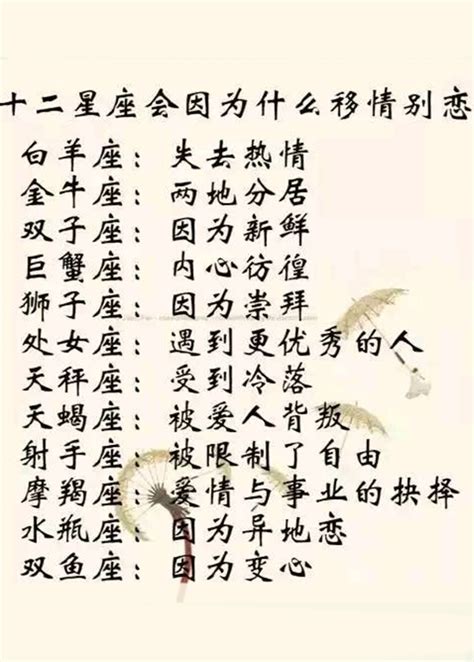 十二星座会因为什么移情别恋
白羊座：失去热情
金牛座：两地分居
双子座：因为新鲜
巨蟹座：内心彷徨
狮子座：因为崇拜
处女座：遇到更优秀的人
天秤座：受到冷落
天蝎座：被爱人背叛
射手座：被限制了自由
摩羯座：爱情与事业的抉择
水瓶座：因为异地恋
双鱼座：因为变心